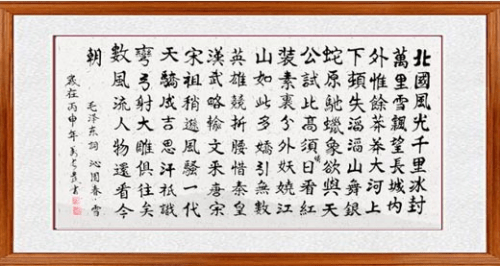 北國風光千里冰封
萬里雪飄望長城內
外惟餘莽莽大河上
下頓失滔滔山舞銀
蛇原馳蠟象欲與天
公試比高須晴日看紅
裝素裹分外妖嬈江
山如此多嬌引無數
英雄競折腰惜秦皇
漢武略輸文采唐宗
宋祖稍遜風騷一代
天驕成吉思汗衹識
彎弓射大雕俱往矣
數風流人物還看今
朝
毛泽东詞 沁园春·雪
歲在丙申年 書